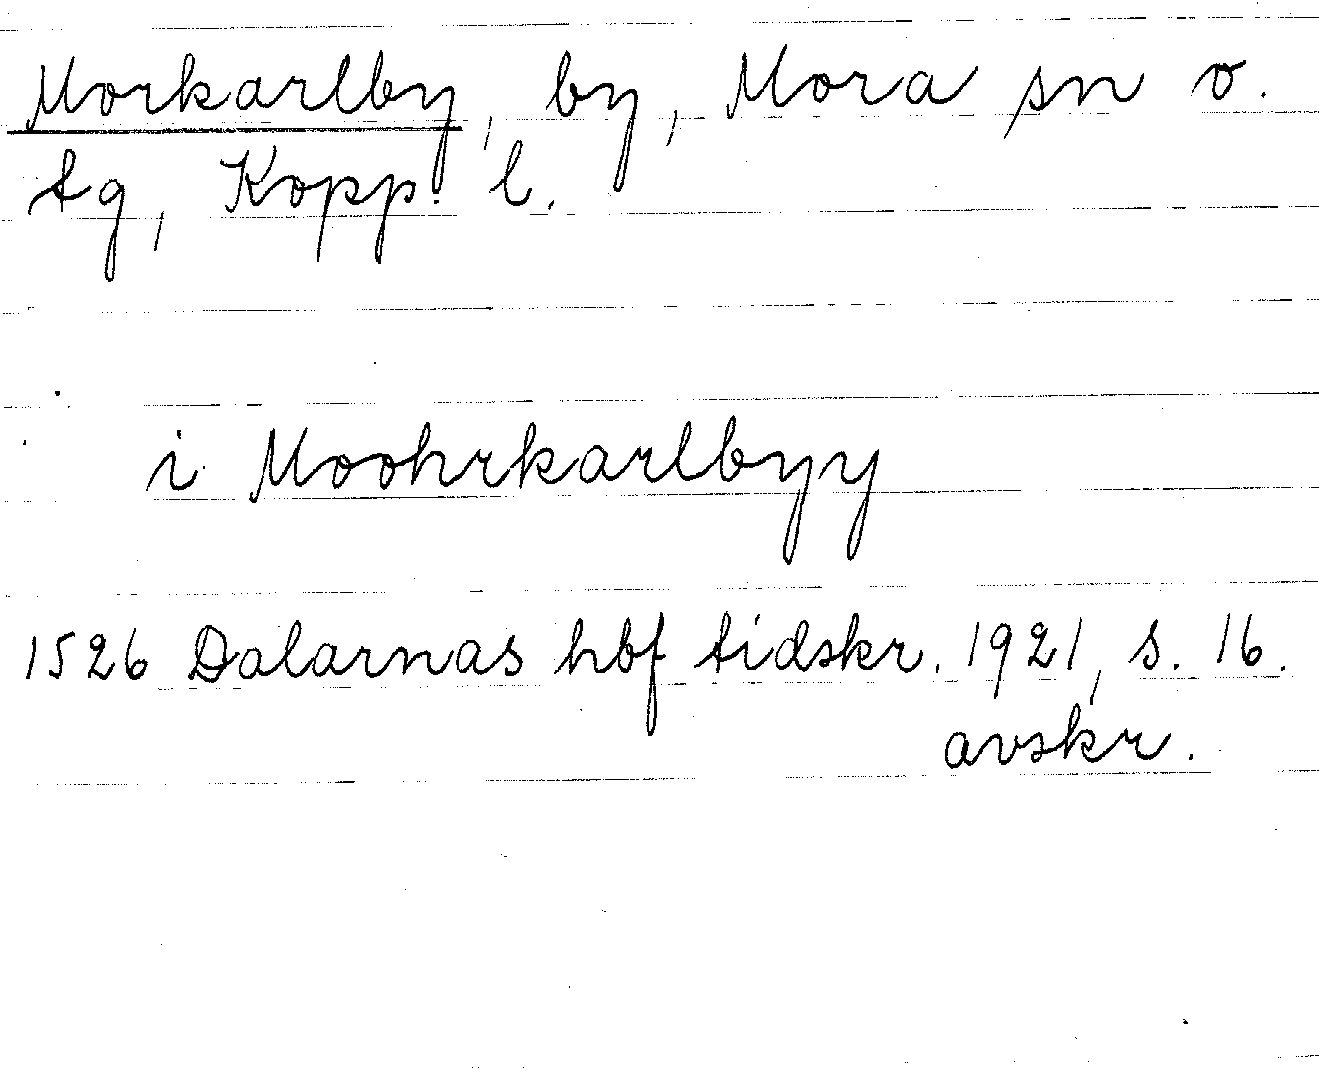 Morkarlby, by, Mora sn o.
tg, Kopp. l.
i Moohrkarlbyy
1526 Dalarnas hbf tidskr. 1921, s. 16.
avskr.